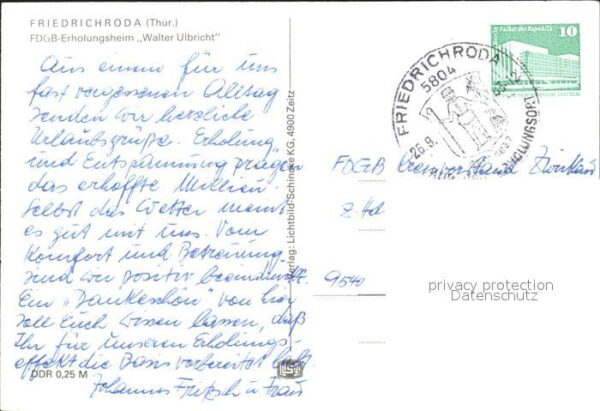 FRIEDRICHRODA (Thür.)
FDGB-Erholungsheim „Walter Ulbricht"
Aus einem für uns
fast vergessenen Alltag
senden wir herzliche
Urlaubsgrüße. Erholung
und Entspannung prägen
das erhoffte Milieu.
Selbst das Wetter meint
es gut mit uns. Vom
Komfort und Betreuung
sind wir positiv beeindruckt.
Ein „Dankeschön" von hier
soll Euch wissen lassen, daß
Ihr für unseren Erholungs-
effekt die Basis vorbereitet habt.
Johannes Fritzsch u. Frau
DDR 0,25 M
Verlag: Lichtbild-Schincke KG, 4900 Zeitz
FRIEDRICHRODA
5804
26.9.
10
FDGB Kreisvorstand Zwickau
z. Hd
9540
privacy protection
Datenschutz